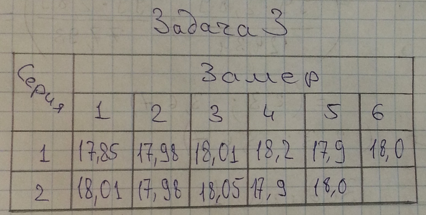 Задача 3
Серия Замер
1 2 3 4 5 6
1 17,85 17,98 18,01 18,2 17,9 18,0
2 18,01 17,98 18,05 17,9 18,0